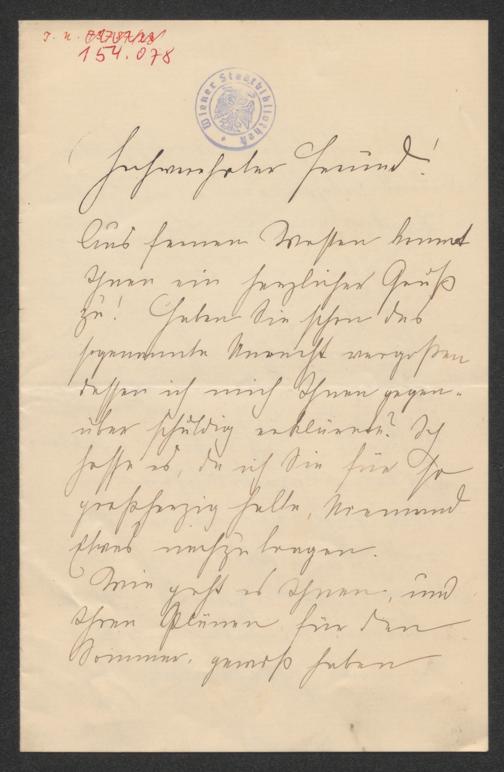 I. N.
154.078
Wiener Stadtbibliothek
Hochverehrter Freund!
Aus fernem Westen kommt
Ihnen ein herzlicher Gruß
zu! Haben Sie schon das
sogenannte Unrecht vergessen
dessen ich mich Ihnen gegen-
über schuldig erklären? Ich
hoffe es, da ich Sie für so
großherzig halte, Niemand
Etwas nachzutragen.
Wie geht es Ihnen, und
Ihren Plänen für den
Sommer, gewiß haben